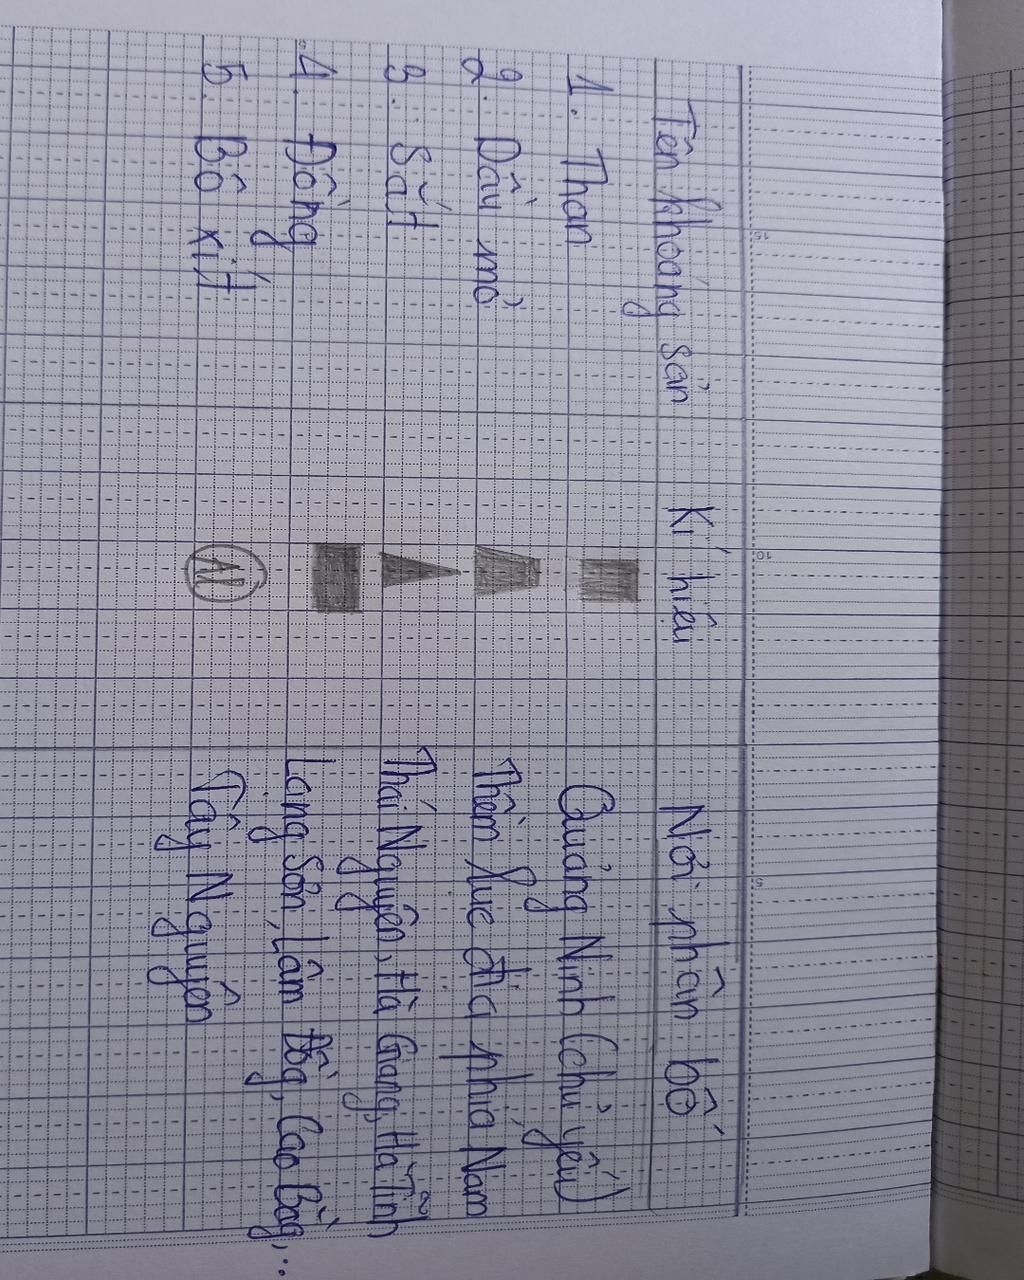 Tên khoáng sản Kí hiệu Nơi phân bố
1. Than Quảng Ninh (chủ yếu)
2. Dầu mỏ Thềm lục địa phía Nam
3. Sắt Thái Nguyên, Hà Giang, Hà Tĩnh
4. Đồng Lạng Sơn, Lâm Đồg, Cao Bằg,...
5. Bô xít Al Tây Nguyên
15
10
5